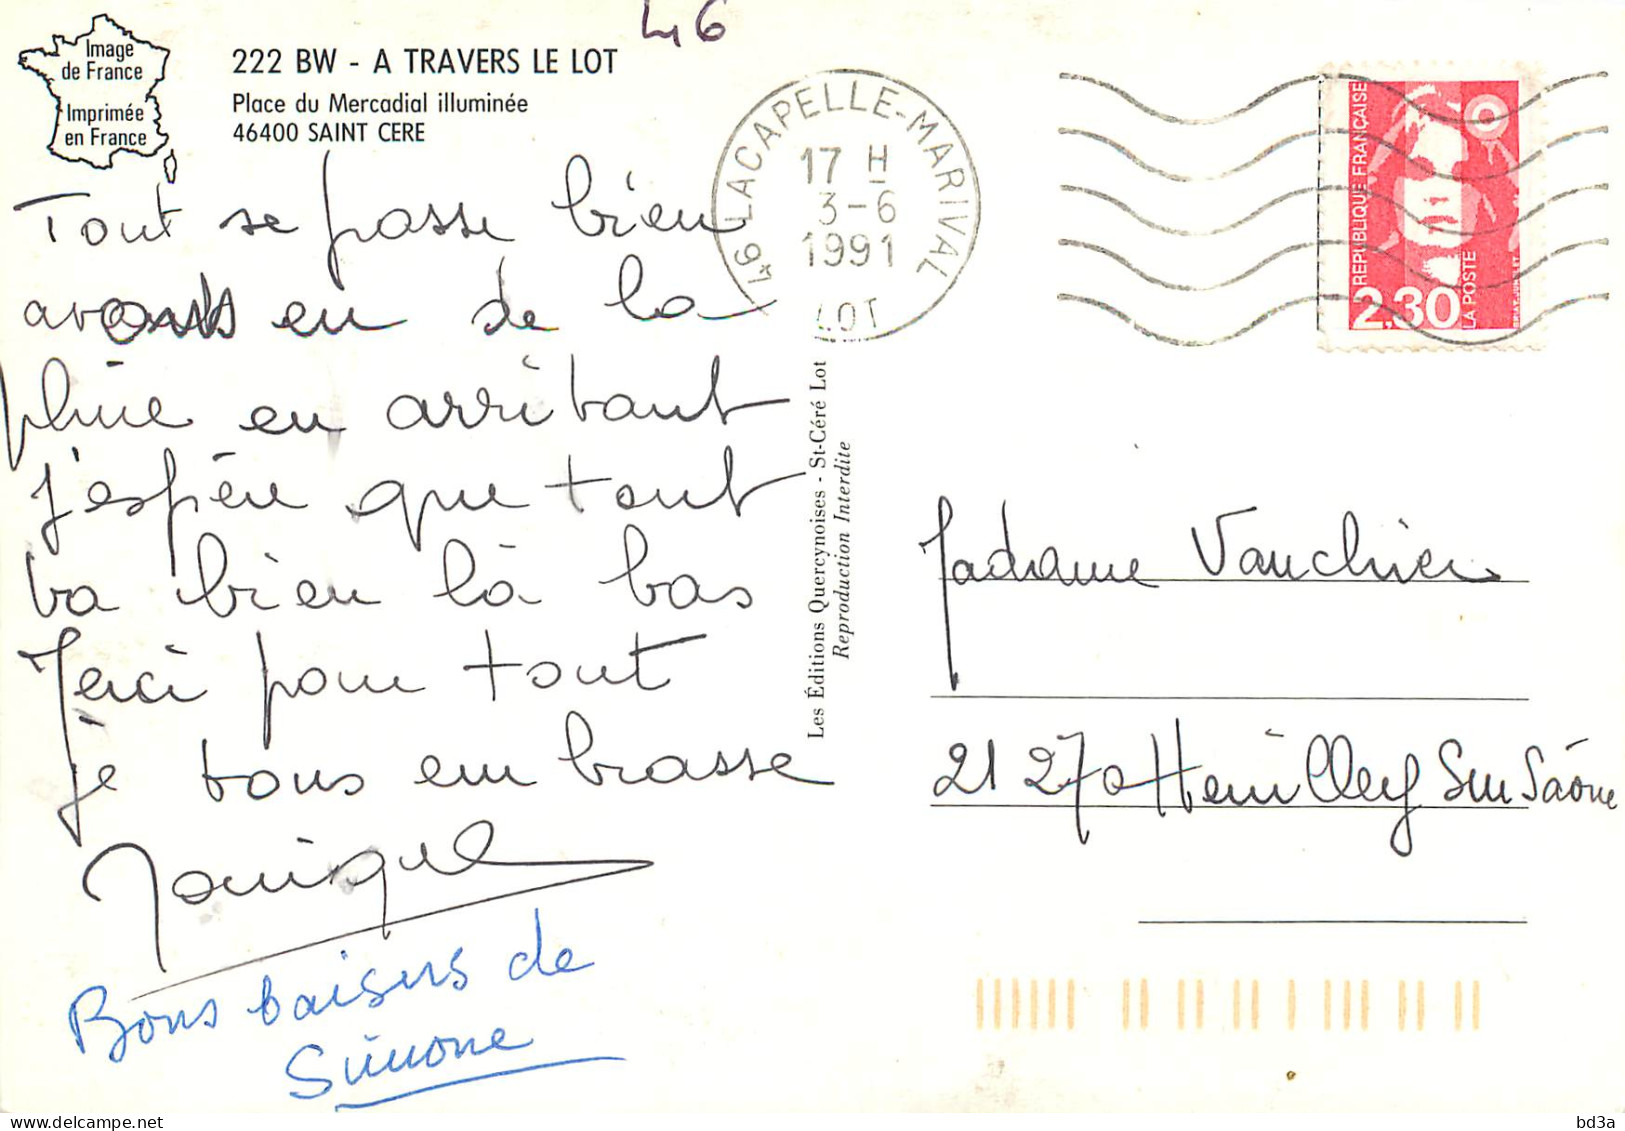 46
Image
de France
Imprimée
en France
222 BW - A TRAVERS LE LOT
Place du Mercadial illuminée
46400 SAINT CERE
Tout se passe bien
avons eu de la
pluie en arrivant
j'espère que tout
va bien là bas
Merci pour tout
je vous embrasse
Monique
Bons baisers de
Simone
46 LACAPELLE-MARIVAL
17 H
3-6
1991
LOT
REPUBLIQUE FRANÇAISE
2,30
LA POSTE
Les Éditions Quercynoises - St-Céré Lot
Reproduction Interdite
Madame Vauchier
21270 Heuilley Sur Saône
bd3a